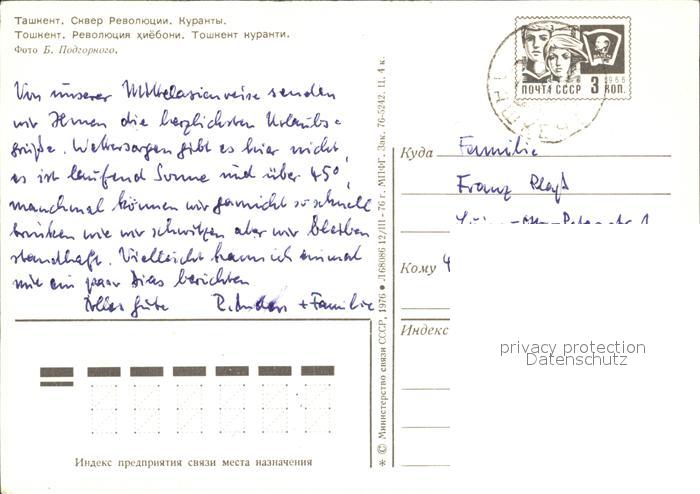 Ташкент. Сквер Революции. Куранты.
Тошкент. Революция хиёбони. Тошкент куранти.
Фото Б. Подгорного.
Von unserer Mittelasienreise senden
wir Ihnen die herzlichsten Urlaubs-
grüße. Wettersorgen gibt es hier nicht,
es ist laufend Sonne und über 45°,
manchmal können wir garnicht so schnell
trinken wie wir schwitzen aber wir bleiben
standhaft. Vielleicht kann ich einmal
mit ein paar Dias berichten.
Alles Gute + Familie
1966
ПОЧТА СССР 3 КОП.
Куда Familie
Franz
Кому
Индекс
privacy protection
Datenschutz
* © Министерство связи СССР, 1976 ● Л68086 12/III-76 г. МПФГ. Зак. 76-5242. Ц. 4 к.
Индекс предприятия связи места назначения